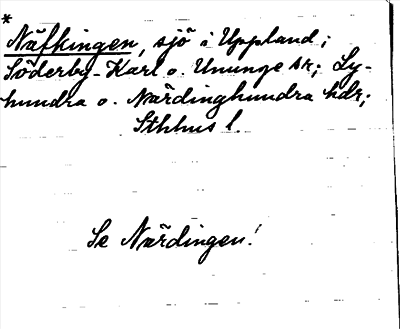 *
Näfkingen, sjö i Uppland;
Söderby-Karl o. Ununge sr; Ly-
hundra o. Närdinghundra hdr;
Sthlms l.
Se Närdingen!